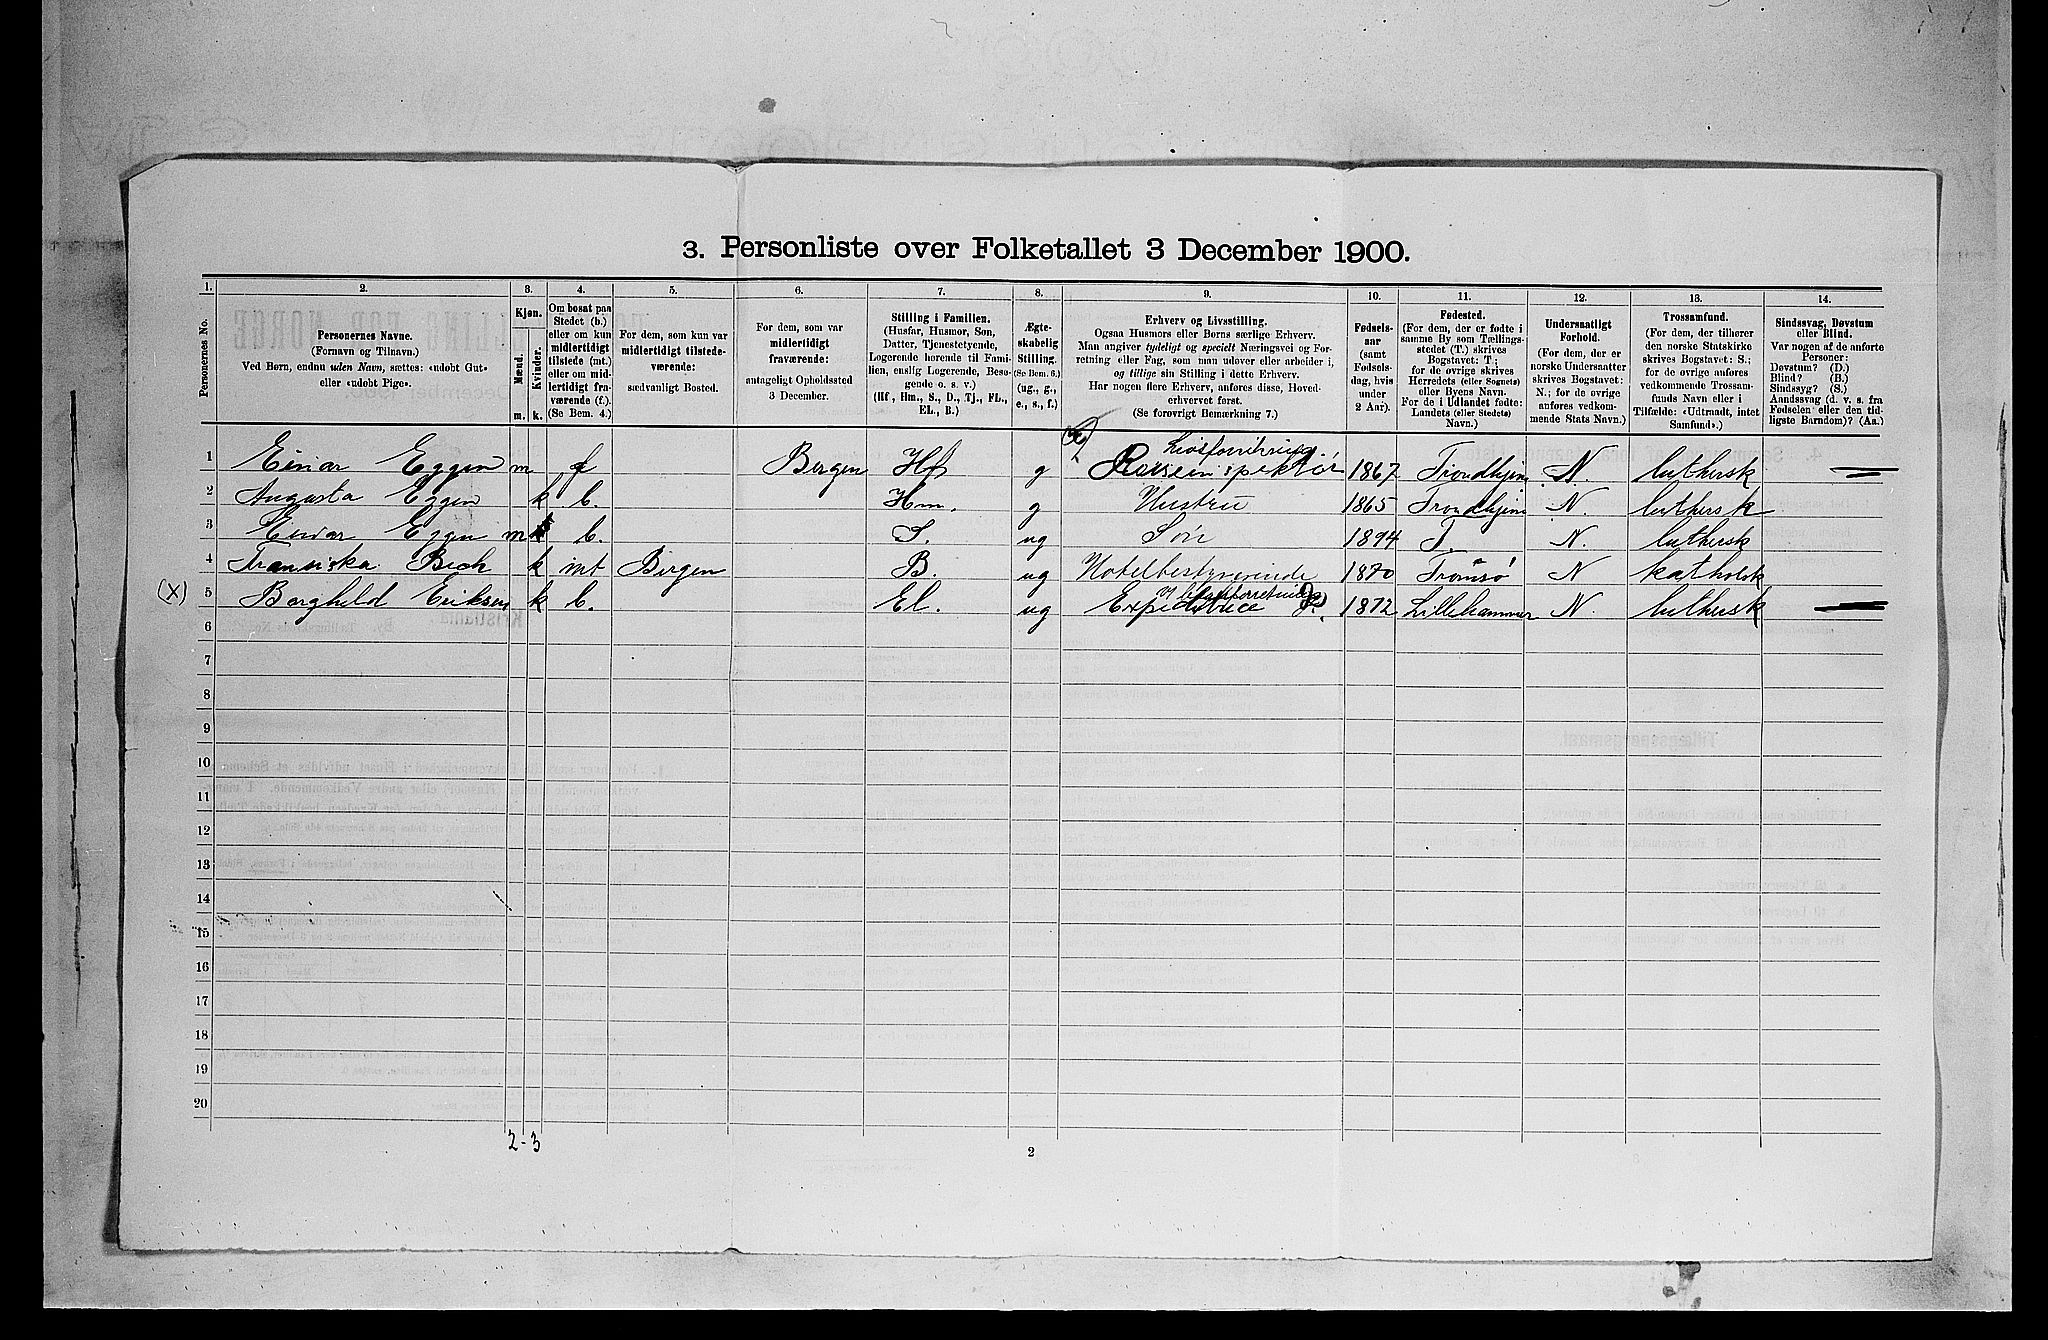 3. Personliste over Folketallet 3 December 1900.
1. 2. 3. 4. 5. 6. 7. 8. 9. 10. 11. 12. 13. 14.
Personernes No.
Personernes Navne.
(Fornavn og Tilnavn.)
Ved Børn, endnu uden Navn, sættes: «udøbt Gut»
eller «udøbt Pige».
Kjøn.
Mænd.
Kvinder.
m. k.
Om bosat paa
Stedet (b.)
eller om kun
midlertidigt
tilstede (mt.)
eller om mid-
lertidigt fra-
værende (f.).
(Se Bem. 4.)
For dem, som kun var
midlertidigt tilstede-
værende:
sædvanligt Bosted.
For dem, som var
midlertidigt
fraværende:
antageligt Opholdssted
3 December.
Stilling i Familien.
(Husfar, Husmor, Søn,
Datter, Tjenestetyende,
Logerende hørende til Fami-
lien, enslig Logerende, Besø-
gende o. s. v.)
(Hf., Hm., S., D., Tj., FL.,
EL., B.)
Ægte-
skabelig
Stilling.
(Se Bem. 6.)
(ug., g.,
e., s., f.)
Erhverv og Livsstilling.
Ogsaa Husmors eller Børns særlige Erhverv.
Man angiver tydeligt og specielt Næringsvei og For-
retning eller Fag, som man udøver eller arbeider i,
og tillige sin Stilling i dette Erhverv.
Har nogen flere Erhverv, anføres disse, Hoved-
erhvervet først.
(Se forøvrigt Bemærkning 7.)
Fødsels-
aar
(samt
Fødsels-
dag, hvis
under
2 Aar).
Fødested.
(For dem, der er fødte i
samme By som Tællings-
stedet (T.) skrives
Bogstavet: T.;
for de øvrige skrives
Herredets (eller Sognets)
eller Byens Navn.
For de i Udlandet fødte:
Landets (eller Stedets)
Navn.)
Undersaatligt
Forhold.
(For dem, der er
norske Undersaatter
skrives Bogstavet:
N.; for de øvrige
anføres vedkom-
mende Stats Navn.)
Trossamfund.
(For dem, der tilhører
den norske Statskirke
skrives Bogstavet: S.;
for de øvrige anføres
vedkommende Trossam-
funds Navn eller i
Tilfælde: «Udtraadt, intet
Samfund».)
Sindssvag, Døvstum
eller Blind.
Var nogen af de anførte
Personer:
Døvstum? (D.)
Blind? (B.)
Sindssyg? (S.)
Aandssvag (d. v. s. fra
Fødselen eller den tid-
ligste Barndom)? (Aa.)
1 Einar Eggen m f Bergen Hf g 1867 Trondhjem N. luthersk
2 Augusta Eggen k b. Hm. g Hustru 1865 Trondhjem N. luthersk
3 Einar Eggen m b. S. ug Søn 1894 T. N. luthersk
4 Fransiska Bech k mt Bergen B. ug Hotelbestyrerinde 1870 Tromsø N katholsk
(X) 5 Borghild Eriksen k b. El. ug Expeditrice 1872 Lillehammer N. luthersk
6
7
8
9
10
11
12
13
14
15
16
17
18
19
20
2-3
2